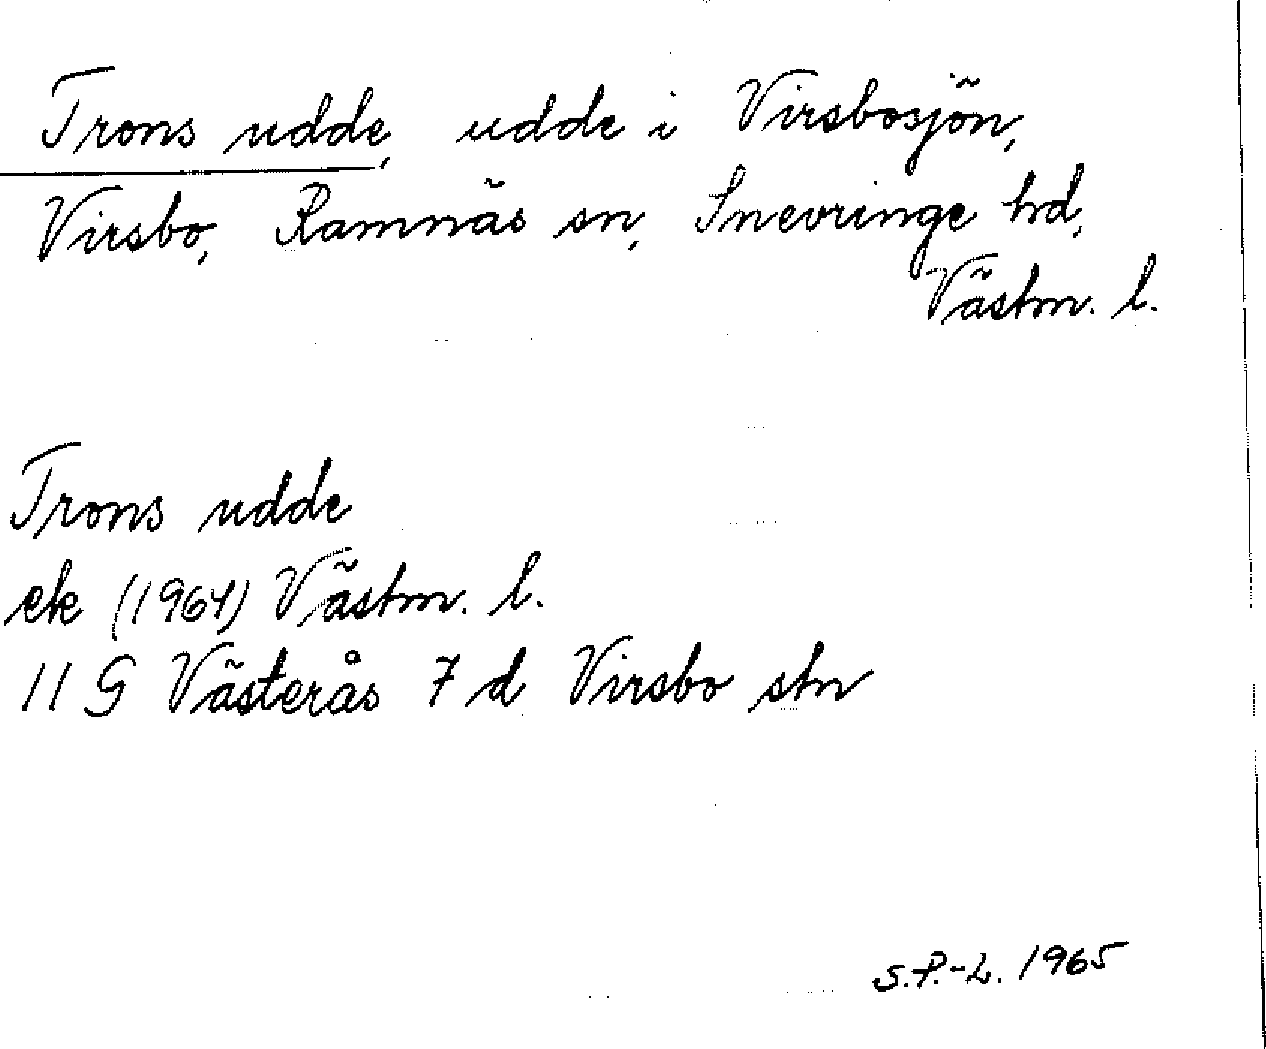 Trons udde, udde i Virsbosjön,
Virsbo, Ramnäs sn, Snevringe hd,
Västm. l.
Trons udde
ek (1964) Västm. l.
11 G Västerås 7 d Virsbo stn
S.P.-L. 1965